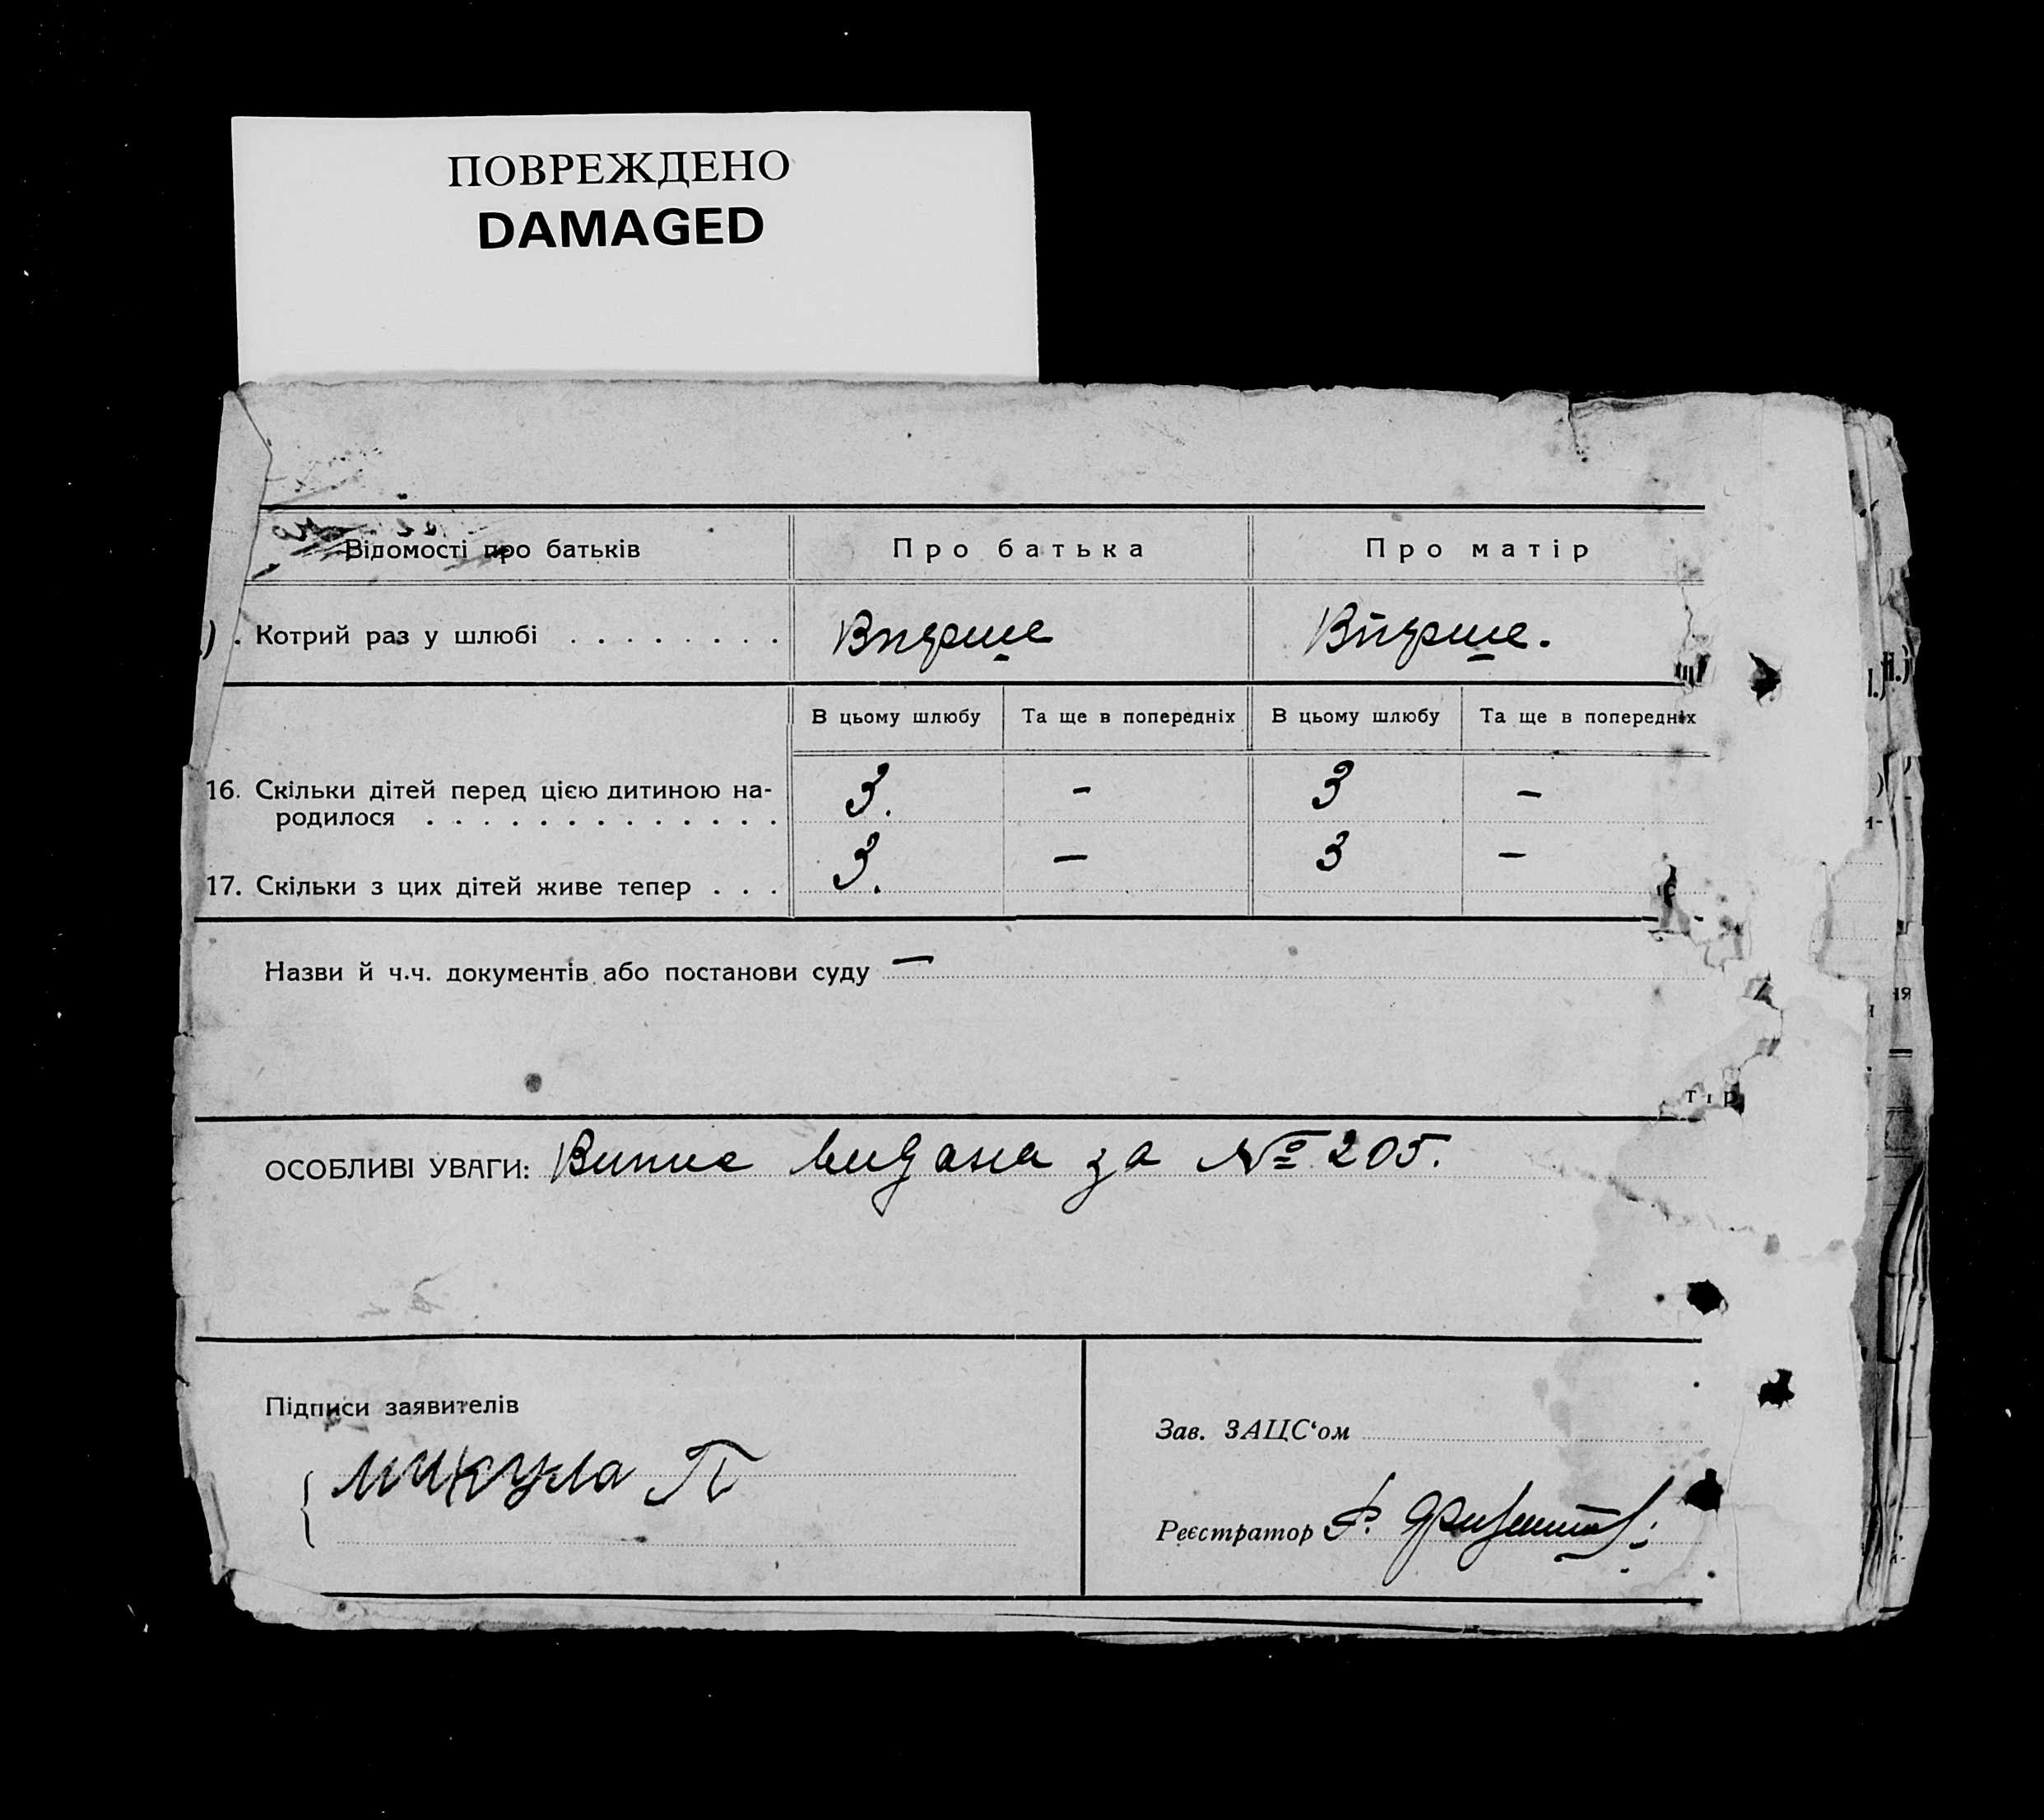 ПОВРЕЖДЕНО
DAMAGED
Відомості про батьків Про батька Про матір
Котрий раз у шлюбі . . . . . . . . Впєрше Впєрше.
В цьому шлюбу Та ще в попередніх В цьому шлюбу Та ще в попередніх
16. Скільки дітей перед цією дитиною на-
родилося . . . . . . . . . . . . . 3. – 3 –
17. Скільки з цих дітей живе тепер . . . 3. – 3 –
Назви й ч.ч. документів або постанови суду –
тір
ОСОБЛИВІ УВАГИ: Випис видана за № 205.
Підписи заявителів
Зав. ЗАЦС‘ом
Микула П
Реєстратор